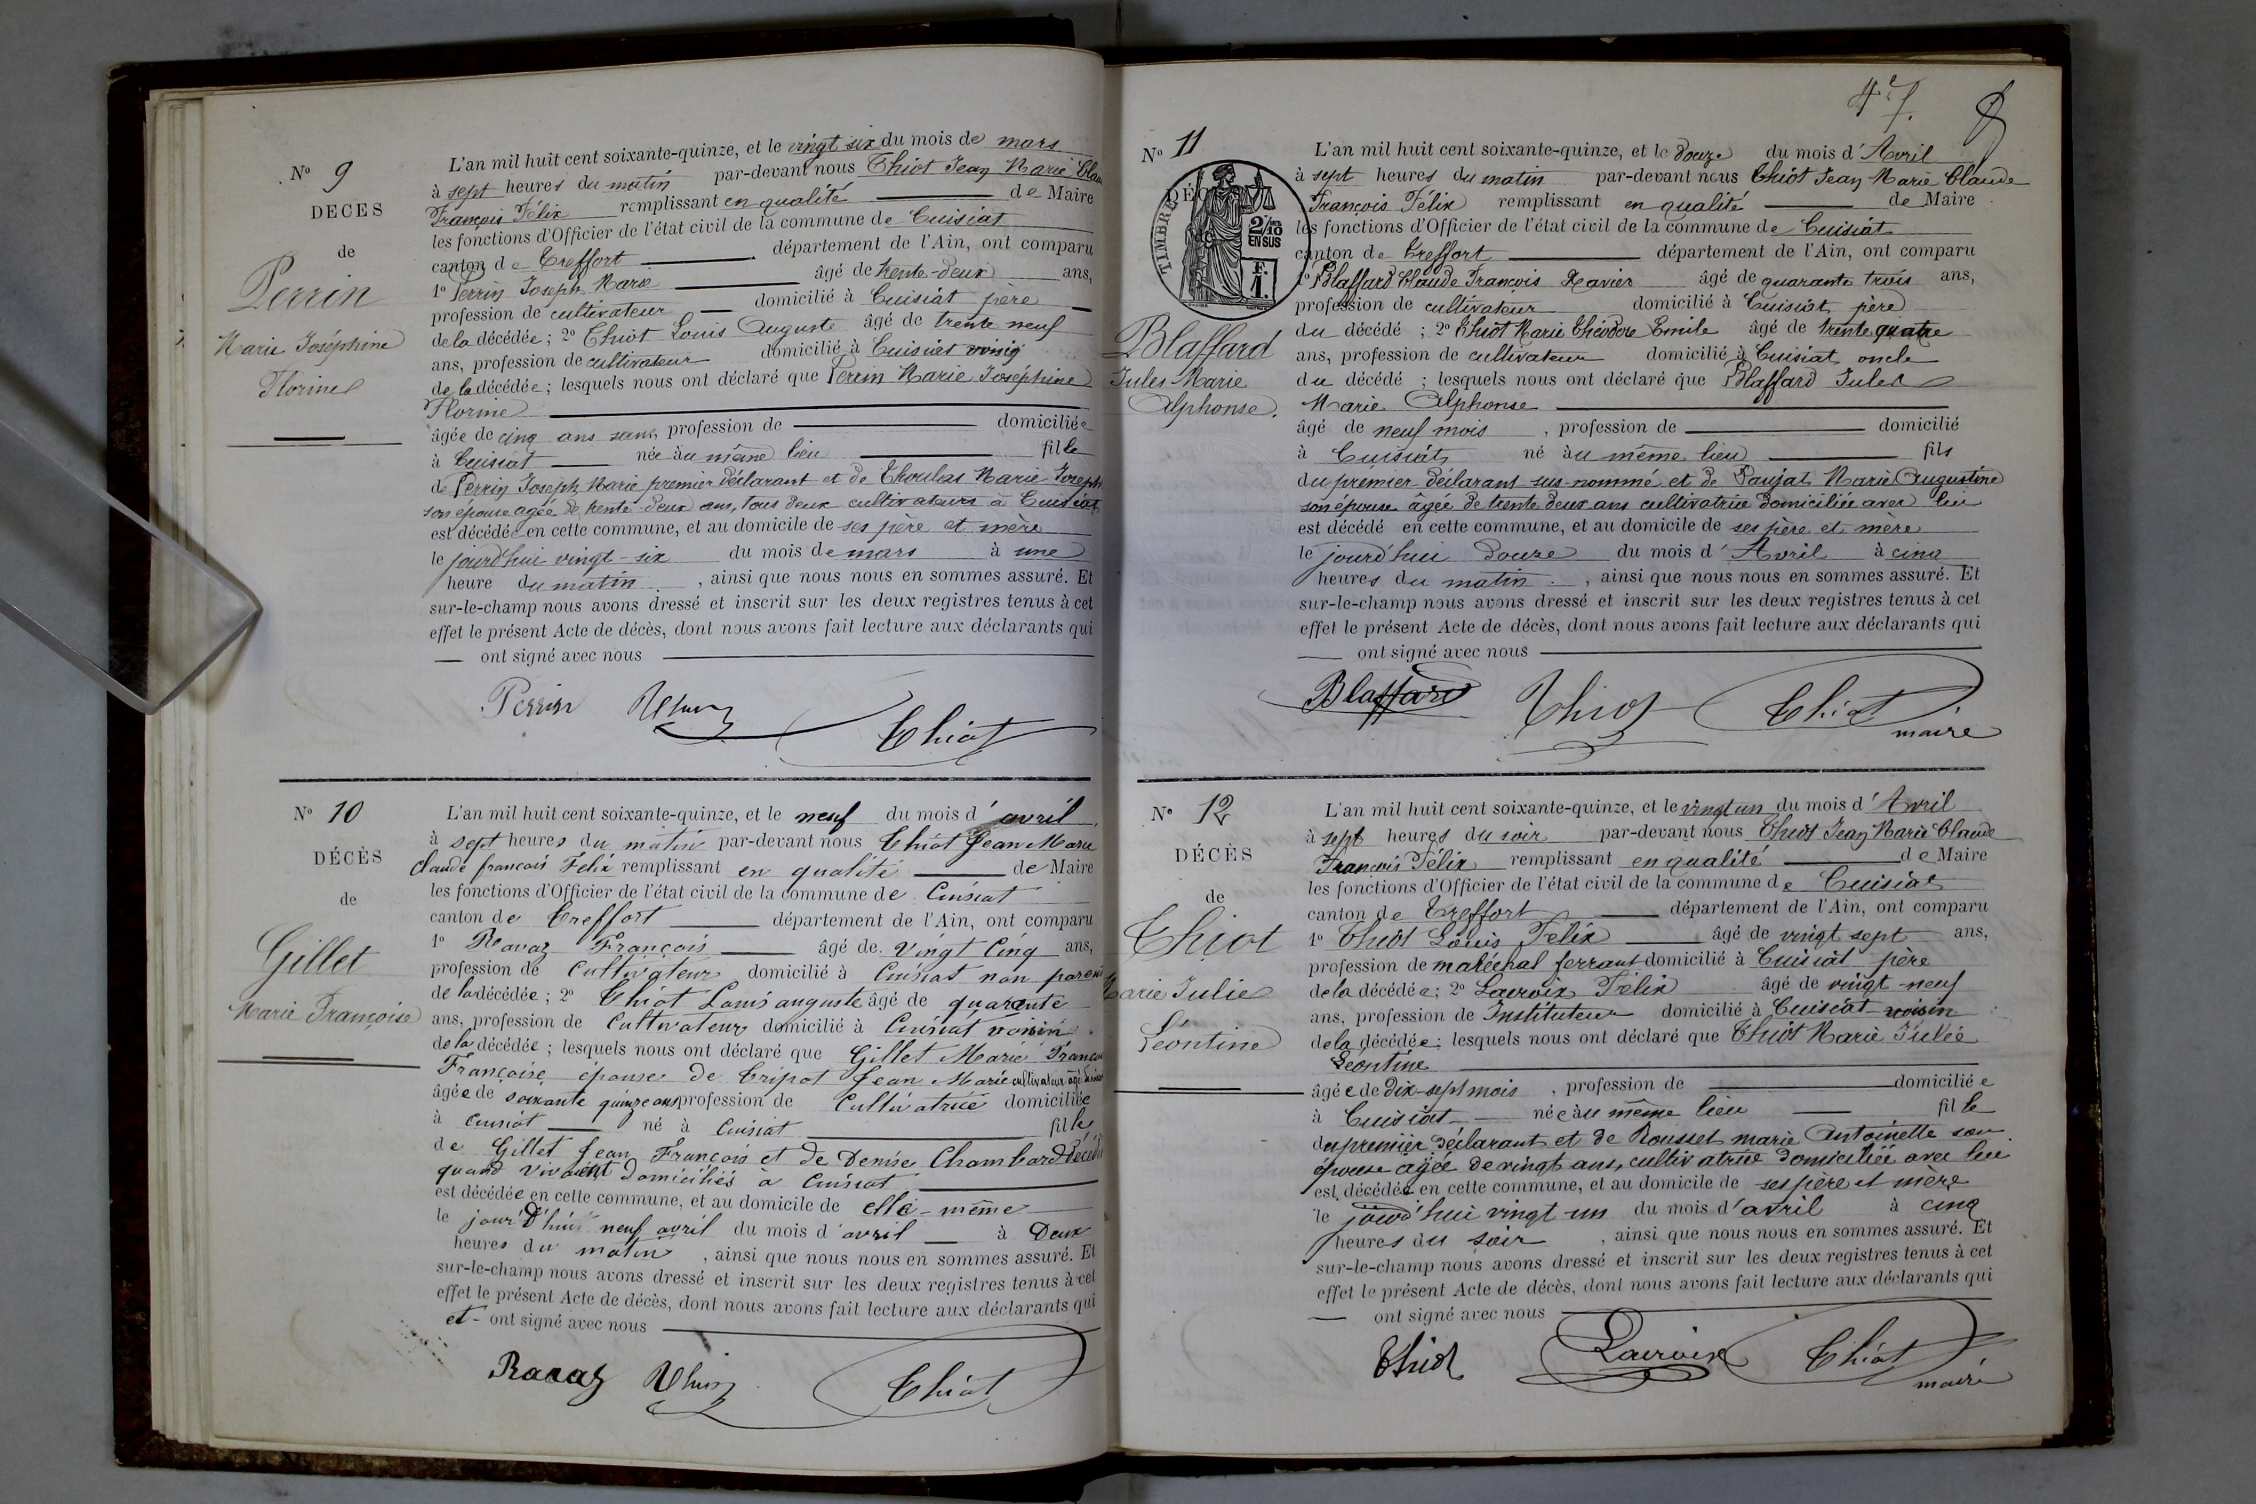 No 9
DECES
de
Perrin
Marie Joséphine
Florine
L'an mil huit cent soixante-quinze, et le vingt six du mois de mars
à sept heures du matin par-devant nous Thiot Jean Marie Clau
François Félix remplissant en qualité de Maire
les fonctions d'Officier de l'état civil de la commune de Cuisiat
canton de Treffort département de l'Ain, ont comparu
1o Perrin Joseph Marie âgé de trente-deux ans,
profession de cultivateur domicilié à Cuisiat père
de la décédée; 2o Thiot Louis Auguste âgé de trente neuf
ans, profession de cultivateur domicilié à Cuisiat voisin
de la décédée; lesquels nous ont déclaré que Perrin Marie Joséphine
Florine
âgée de cinq ans sans profession de domiciliée
à Cuisiat née au même lieu fille
de Perrin Joseph Marie premier déclarant et de Marie Joseph
son épouse agée de trente-deux ans, tous deux cultivateurs à Cuisiat
est décédée en cette commune, et au domicile de ses père et mère
le jourd'hui vingt-six du mois de mars à une
heure du matin, ainsi que nous nous en sommes assuré. Et
sur-le-champ nous avons dressé et inscrit sur les deux registres tenus à cet
effet le présent Acte de décès, dont nous avons fait lecture aux déclarants qui
— ont signé avec nous
Perrin Thiot
No 10
DÉCÈS
de
Gillet
Marie Françoise
L'an mil huit cent soixante-quinze, et le neuf du mois d'avril
à sept heures du matin par-devant nous Thiot Jean Marie
Claude françois Felix remplissant en qualité de Maire
les fonctions d'Officier de l'état civil de la commune de Cuisiat
canton de Treffort département de l'Ain, ont comparu
1o Ravaz François âgé de vingt Cinq ans,
profession de Cultivateur domicilié à Cuisiat non parent
de la décédée; 2o Thiot Louis auguste âgé de quarante
ans, profession de Cultivateur domicilié à Cuisiat voisin
de la décédée; lesquels nous ont déclaré que Gillet Marie França
Françoise épouse de Tripot Jean Marie cultivateur âgé
âgée de soixante quinze ans profession de Cultivatrice domiciliée
à Cuisiat né à Cuisiat fille
de Gillet Jean François et de Denise Chambard décédés
quand vivaient domiciliés à Cuisiat
est décédée en cette commune, et au domicile de elle-même
le jour d'hui neuf avril du mois d'avril à Deux
heures du matin, ainsi que nous nous en sommes assuré. Et
sur-le-champ nous avons dressé et inscrit sur les deux registres tenus à cet
effet le présent Acte de décès, dont nous avons fait lecture aux déclarants qui
et - ont signé avec nous
Ravaz Thiot
No 11
DÉC
TIMBRE
2/10
EN SUS
F.
1.
Blaffard
Jules Marie
Alphonse.
L'an mil huit cent soixante-quinze, et le douze du mois d'Avril
à sept heures du matin par-devant nous Thiot Jean Marie Claude
François Félix remplissant en qualité de Maire
les fonctions d'Officier de l'état civil de la commune de Cuisiat
canton de Treffort département de l'Ain, ont comparu
1o Blaffard Claude François Xavier âgé de quarante trois ans,
profession de cultivateur domicilié à Cuisiat père
du décédé; 2o Thiot Marie Théodore Emile âgé de trente quatre
ans, profession de cultivateur domicilié à Cuisiat oncle
du décédé; lesquels nous ont déclaré que Blaffard Jules
Marie Alphonse
âgé de neuf mois, profession de domicilié
à Cuisiat né au même lieu fils
du premier déclarant sus-nommé et de Paujat Marie Augustine
son épouse âgée de trente deux ans cultivatrice domiciliée avec lui
est décédé en cette commune, et au domicile de ses père et mère
le jourd'hui douze du mois d'Avril à cinq
heures du matin, ainsi que nous nous en sommes assuré. Et
sur-le-champ nous avons dressé et inscrit sur les deux registres tenus à cet
effet le présent Acte de décès, dont nous avons fait lecture aux déclarants qui
— ont signé avec nous
Blaffard Thiot Thiot
maire
No 12
DÉCÈS
de
Thiot
Marie Julie
Léontine
L'an mil huit cent soixante-quinze, et le vingt un du mois d'Avril
à sept heures du soir par-devant nous Thiot Jean Marie Claude
François Félix remplissant en qualité de Maire
les fonctions d'Officier de l'état civil de la commune de Cuisiat
canton de Treffort département de l'Ain, ont comparu
1o Thiot Louis Felix âgé de vingt sept ans,
profession de maréchal ferrant domicilié à Cuisiat père
de la décédée; 2o Lacroix Félix âgé de vingt-neuf
ans, profession de Instituteur domicilié à Cuisiat voisin
de la décédée; lesquels nous ont déclaré que Thiot Marie Julie
Léontine
âgée de dix-sept mois, profession de domiciliée
à Cuisiat née au même lieu fille
du premier déclarant et de Rousset marie Antoinette son
épouse agée de vingt ans, cultivatrice domiciliée avec lui
est décédée en cette commune, et au domicile de ses père et mère
le jourd'hui vingt-un du mois d'avril à cinq
heures du soir, ainsi que nous nous en sommes assuré. Et
sur-le-champ nous avons dressé et inscrit sur les deux registres tenus à cet
effet le présent Acte de décès, dont nous avons fait lecture aux déclarants qui
— ont signé avec nous
Thiot Lacroix Thiot
maire